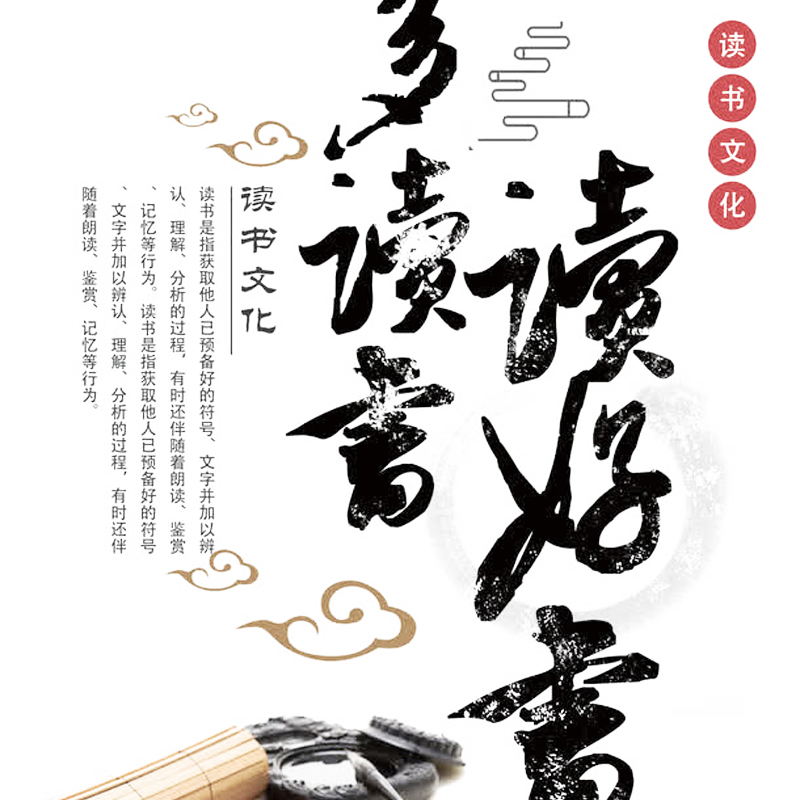 读书文化
读好书
多读书
读书文化
读书是指获取他人已预备好的符号、文字并加以辨
认、理解、分析的过程，有时还伴随着朗读、鉴赏
、记忆等行为。读书是指获取他人已预备好的符号
、文字并加以辨认、理解、分析的过程，有时还伴
随着朗读、鉴赏、记忆等行为。